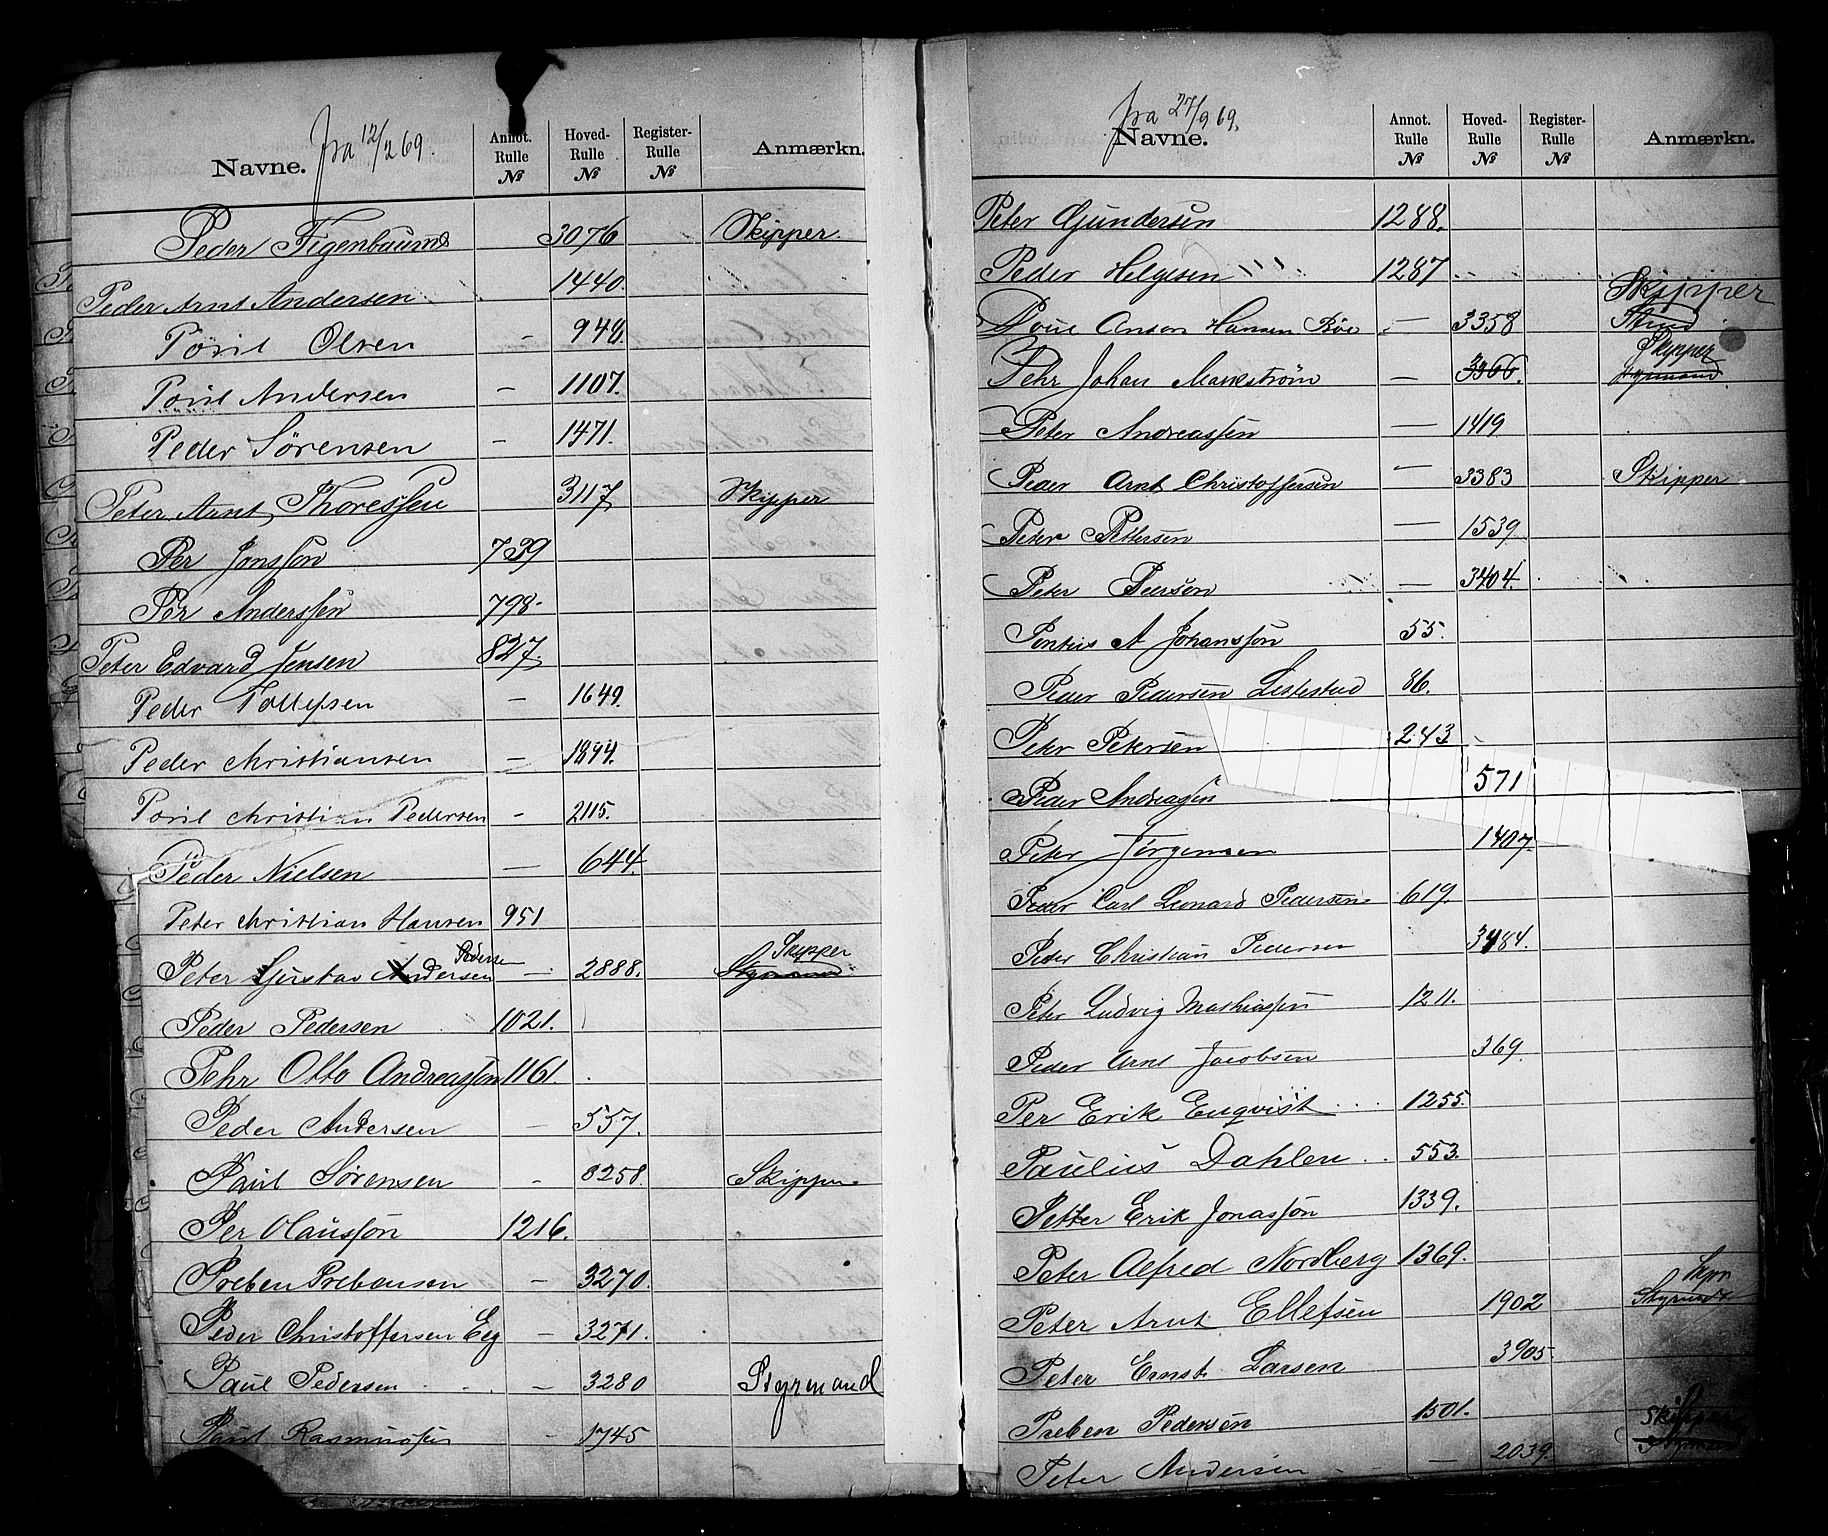 fra 12/2 69.
Navne. Annot. Rulle № Hoved-Rulle № Register-Rulle № Anmærkn.
Peder Figenbaum 3076 Skipper.
Peder Arnt Andersen 1440.
Povil Olsen - 948.
Povil Andersen - 1107.
Peder Sørensen - 1471.
Peter Arnt Thoressen 3117 Skipper
Per Jonsson 739
Per Anderssøn 798.
Peter Edvard Jensen 827.
Peder Tollefsen - 1649.
Peder Christiansen - 1844.
Povil Christian Pedersen - 2115.
Peder Nielsen - 644.
Peter Christian Hansen 951
Pederse Skipper
Peter Gustav Andersen - 2888. Styrmand
Peder Pedersen 1021.
Pehr Otto Andreasson 1161.
Peder Andersen - 557.
Paul Sørensen - 3258. Skipper
Per Olausson 1216.
Preben Prebensen - 3270.
Peder Christoffersen Eeg - 3271.
Paul Pedersen - 3280 Styrmand
Paul Rasmussen - 1745
fra 27/9 69.
Navne. Annot. Rulle № Hoved-Rulle № Register-Rulle № Anmærkn.
Peter Gundersen 1288.
Peder Helgesen 1287
Skipper
Poul Anson Hansen Røe - 3358 Strmd
Skipper
Pehr Johan Markstrøm - 3366. Styrmand
Peter Andreassen - 1419
Peder Arnt Christoffersen - 3383 Skipper
Peder Pettersen - 1539.
Peter Iversen - 3404.
Pontus A Johansson 55.
Peder Pedersen Lestestad 86.
Peter Petersen 243
Peder Andreassen 571
Peter Jørgensen 1407
Peder Carl Leonard Pedersen 619.
Peder Christian Pedersen 3484.
Peter Ludvig Mathiassen 1211.
Peder Arnt Jacobsen 369.
Per Erik Enqvist 1255.
Paulus Dahlen 553.
Petter Erik Jonasson 1339.
Peter Alfred Nordberg 1369.
Skpr
Peter Arnt Ellefsen 1902 Styrmdt
Peter Ernst Larsen 3905
Preben Pedersen 1501.
Skipper
Peter Andersen - 2039. Styrmand